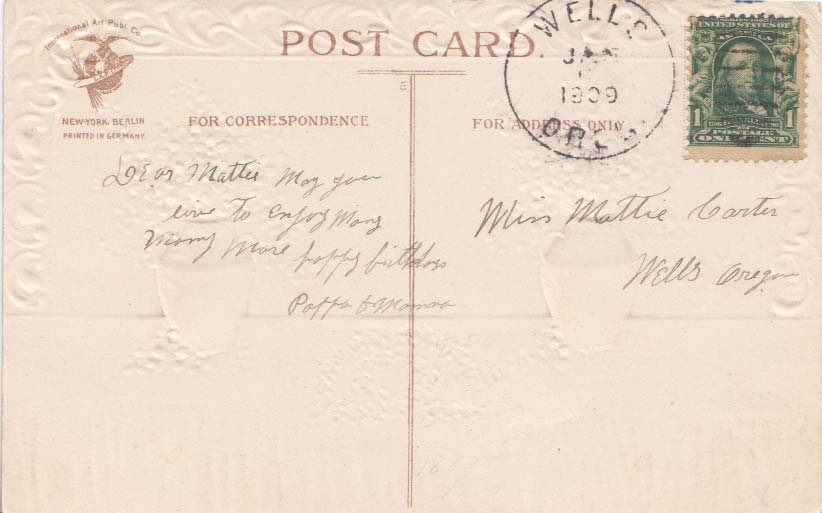 International Art Publ. Co.
NEW-YORK. BERLIN
PRINTED IN GERMANY.
POST CARD.
FOR CORRESPONDENCE
FOR ADDRESS ONLY
WELLS
JAN
1909
OREG.
SERIES 1902
UNITED STATES OF
AMERICA
1 1
POSTAGE
ONE CENT
Dear Mattie May you
live to enjoy Many
Many More happy birthdays
Pappa & Momma
Miss Mattie Carter
Wells Oregon